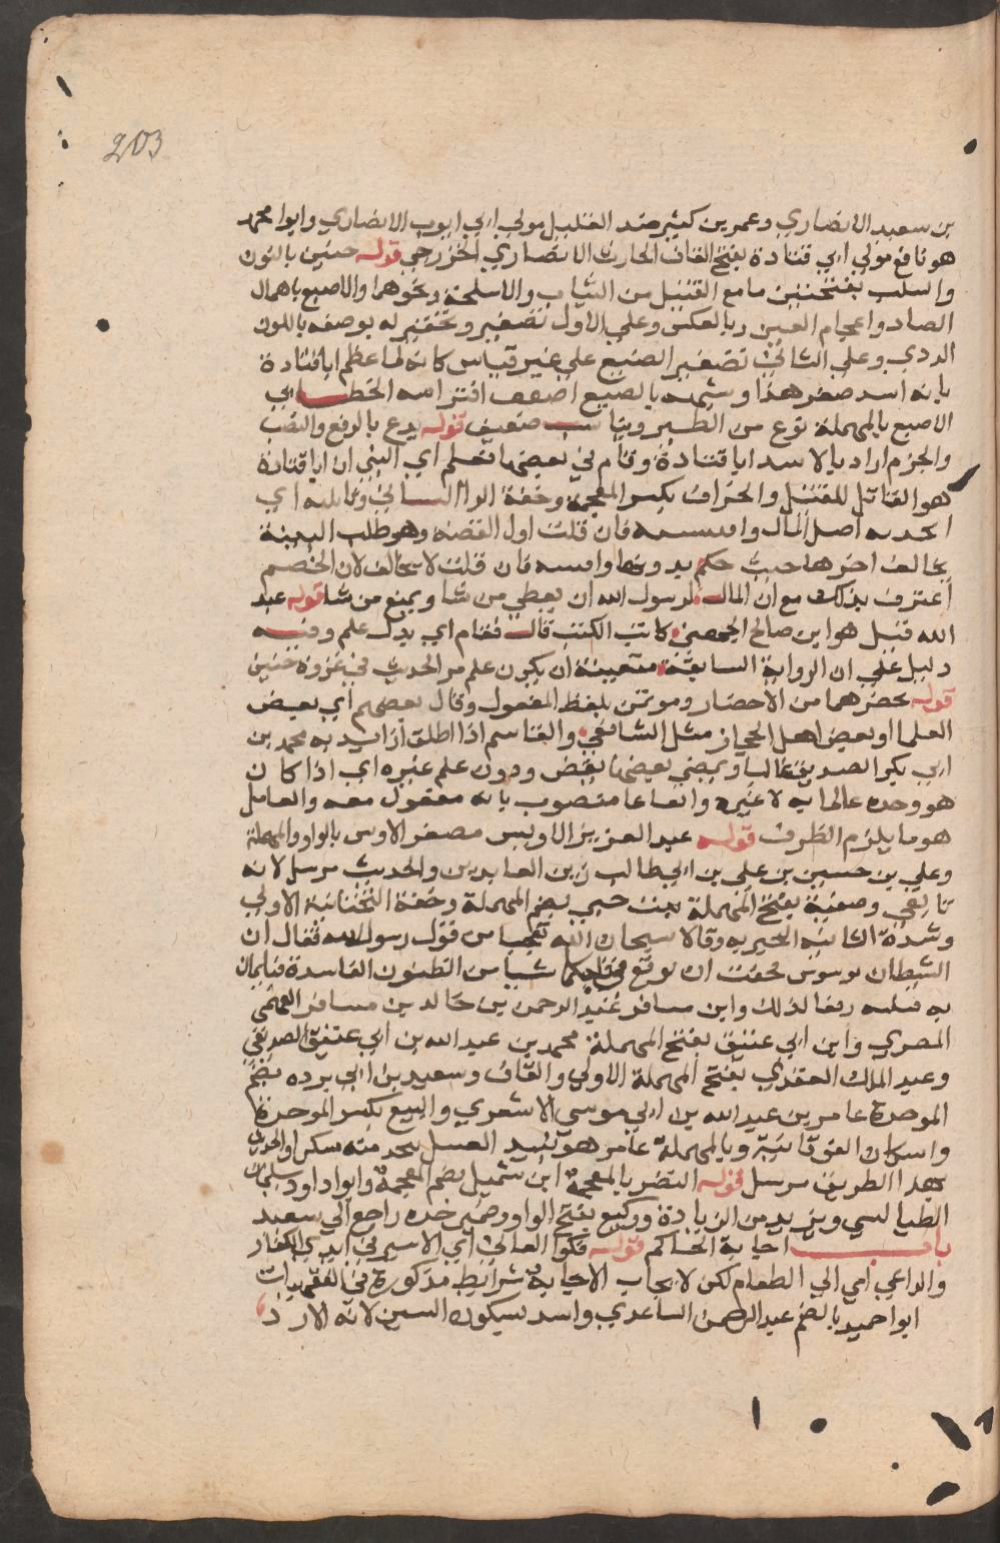 203
بن سعيد الانصاري وعمر بن كثير ضد القليل مولي ابي ايوب الانصاري وابوا محمد
هو نافع مولي ابي قتادة بفتح القاف الحارث الانصاري الخزرجي قوله حنين بالنون
والسلب بفتحتين ما مع القتيل من الثياب والاسلحة ونحوهما والاصيبع باهمال
الصاد واعجام العين وبالعكس وعلي الاول تصغير وتحقير له بوصفه باللون
الردي وعلي الثاني تصغير الضبع علي غير قياس كانه لما عظم ابا قتادة
بانه اسد صغر هذا وشبهه بالضبع لضعف افتراسه الخطابي
الاصيبع بالمهملة نوع من الطير ونبات ضعيف قوله يدع بالرفع والنصب
والجزم اراد بالاسد ابا قتادة وقام في بعضها فعلم اي النبي ان ابا قتادة
هو القاتل للقتيل والخراف بكسر المعجمة وخفة الرا البستان وتاثلته اي
اتخذته اصل المال واقتنيته فان قلت اول القصة وهو طلب البينة
يخالف اخرها حيث حكم بدونها وامسه فان قلت لا يخالف لان الخصم
اعترف بذلك مع ان المال لرسول الله ان يعطي من شا ويمنع من شا قوله عبد
الله قيل هو ابن صالح الجهني كاتب الكتب قال فقام اي بدل علم وفيه
دليل علي ان الرواية السابقة متعينة ان يكون علم من الحديث في غزوة حنين
قوله يحضرهما من الاحضار وموتمن بلفظ المفعول وقال بعضهم اي بعض
العلما او بعض اهل الحجاز مثل الشافعي والقاسم اذا اطلق ازايد به محمد بن
ابي بكر الصديق غالبا ويمضي بعضها يقض ودون علم غيره اي اذا كان
هو وحده عالما به لا غيره وايقاعا منصوب بانه مفعول معه والعامل
هو ما يلزم الظرف قوله عبد العزيز الاويس مصغر الاوس بالواو والمهملة
وعلي بن حسين بن علي بن ابي طالب زين العابدين والحديث مرسل لانه
تابعي وصفية بفتح المهملة بنت حيي بضم المهملة وخفة التحتانية الاولي
وشدة الثانية الخيبرية وقالا سبحان الله تعجبا من قول رسول الله فقال ان
الشيطان يوسوس فخفت ان يوقع في قلبكما شيا من الظنون الفاسدة فتاثمان
به فقلته دفعا لذلك وابن مسافر عبد الرحمن بن خالد بن مسافر الفهمي
المصري وابن ابي عتيق بفتح المهملة محمد بن عبد الله بن ابي عتيق الصديقي
وعبد الملك العقدي بفتح المهملة الاولي والقاف وسعيد بن ابي برده بضم
الموحدة عامر بن عبد الله بن ابي موسي الاشعري والبتع بكسر الموحدة
واسكان الفوقانية وبالمهملة عامر هو نبيذ العسل يتخذ منه سكرا والحديث
بهذا الطريق مرسل قوله النضر بالمعجمة ابن شميل بضم المعجمة وابو داود سليمان
الطيالسي ويزيد من الزيادة ووكيع بفتح الواو وضمير جده راجع الي سعيد
باب اجابة الحاكم قوله فكوا العاني اي الاسير في ايدي الكفار
والداعي اي الي الطعام لكن لايجاب الاجابة شرايط مذكورة في الفقهيات
ابوا حميد بالضم عبد الرحمن الساعدي واسد بسكون السين لانه الازد